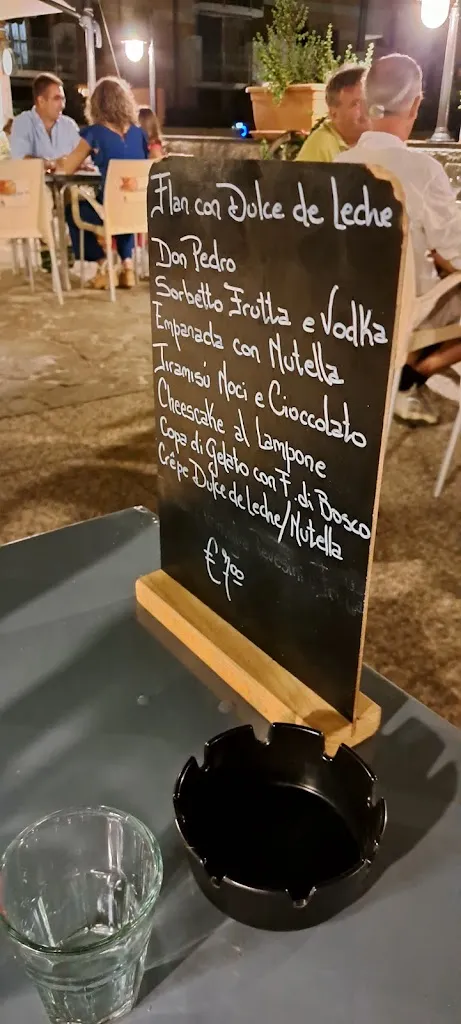 Flan con Dulce de Leche
Don Pedro
Sorbetto Frutta e Vodka
Empanada con Nutella
Tiramisú Noci e Cioccolato
Cheescake al Lampone
Copa di Gelato con F. di Bosco
Crêpe Dulce de leche/Nutella
€ 7,00